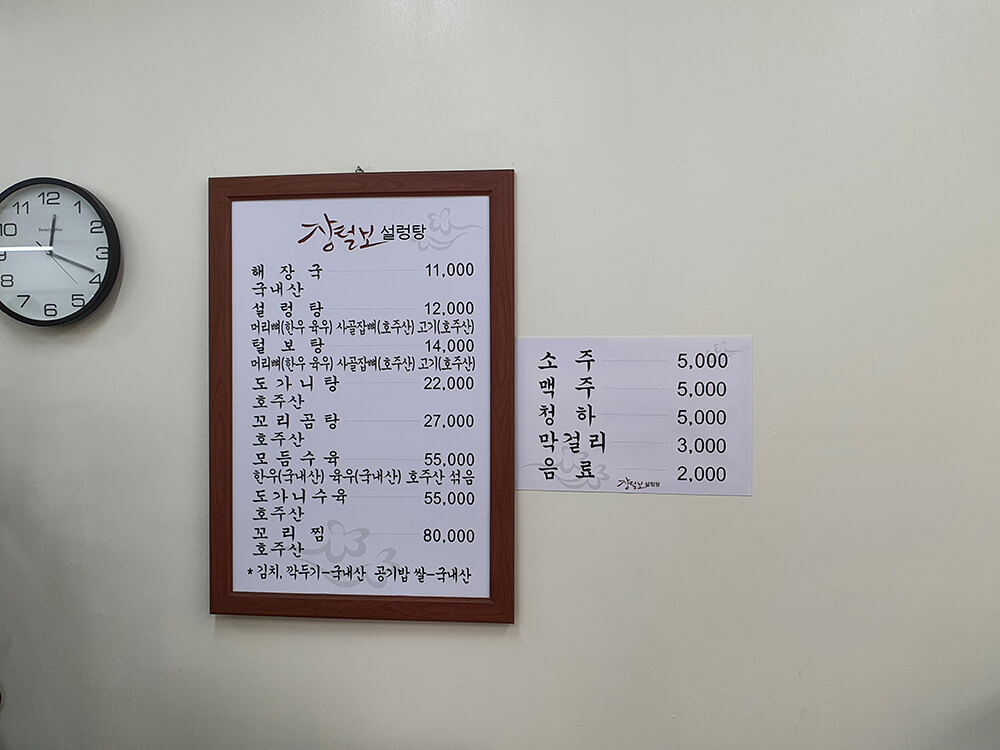 장털보 설렁탕
해장국 11,000
국내산
설렁탕 12,000
머리뼈(한우 육우) 사골잡뼈(호주산) 고기(호주산)
털보탕 14,000
머리뼈(한우 육우) 사골잡뼈(호주산) 고기(호주산)
도가니탕 22,000
호주산
꼬리곰탕 27,000
호주산
모듬수육 55,000
한우(국내산) 육우(국내산) 호주산 섞음
도가니수육 55,000
호주산
꼬리찜 80,000
호주산
* 김치, 깍두기-국내산 공기밥 쌀-국내산
소주 5,000
맥주 5,000
청하 5,000
막걸리 3,000
음료 2,000
장털보 설렁탕
12
1
2
3
4
5
6
7
8
9
10
11